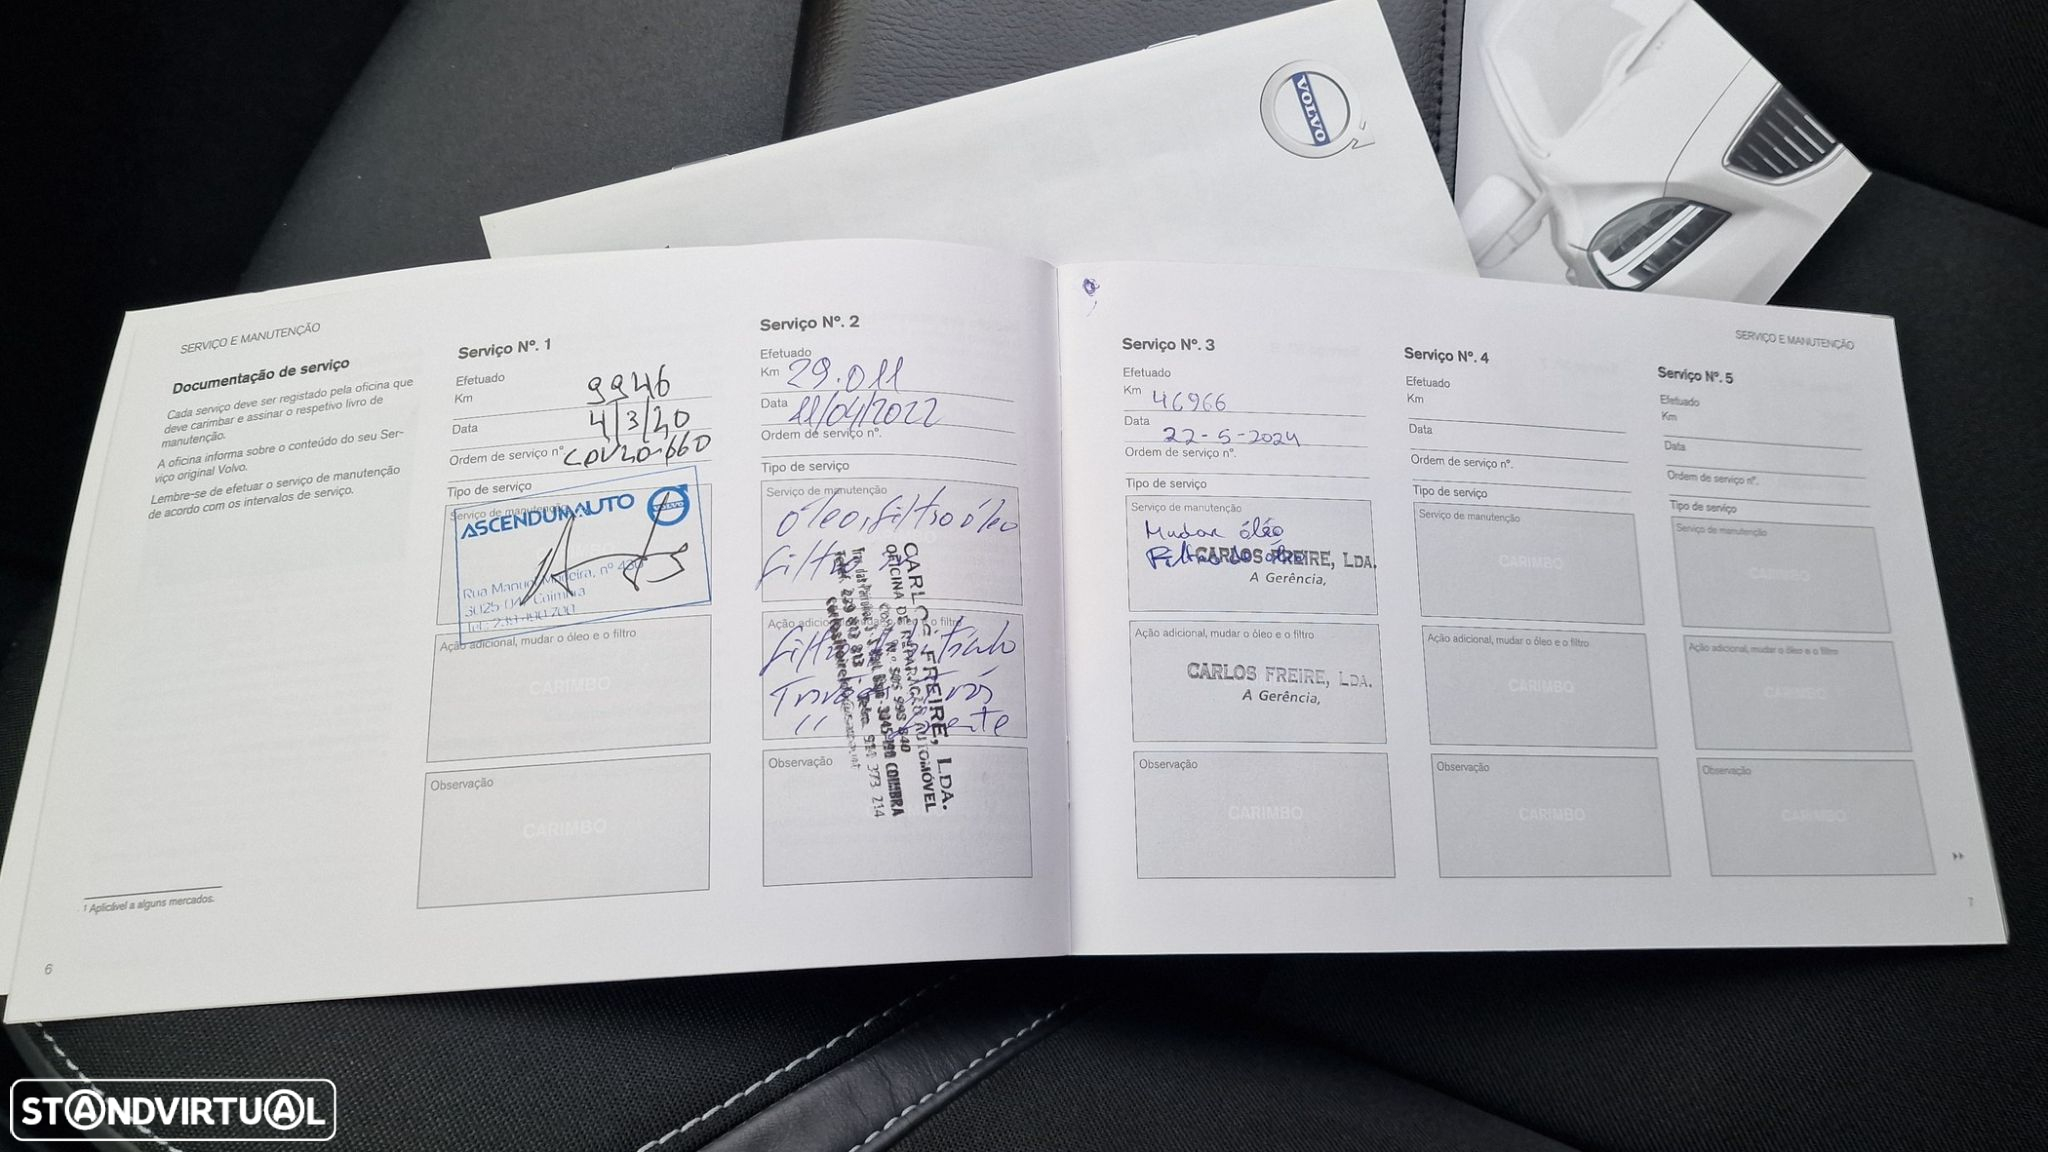 VOLVO
SERVIÇO E MANUTENÇÃO
Documentação de serviço
Cada serviço deve ser registado pela oficina que
deve carimbar e assinar o respetivo livro de
manutenção.
A oficina informa sobre o conteúdo do seu Ser-
viço original Volvo.
Lembre-se de efetuar o serviço de manutenção
de acordo com os intervalos de serviço.
1 Aplicável a alguns mercados.
6
Serviço Nº. 1
Efetuado
Km 9946
Data 4/3/20
Ordem de serviço nº. CDV20-660
Tipo de serviço
Serviço de manutenção
ASCENDUMAUTO
VOLVO
Rua Manuel Madeira, nº 430
Coimbra
Ação adicional, mudar o óleo e o filtro
CARIMBO
Observação
CARIMBO
Serviço Nº. 2
Efetuado
Km 29.011
Data 11/04/2022
Ordem de serviço nº.
Tipo de serviço
Serviço de manutenção
Óleo, filtro óleo
Ação adicional, mudar o óleo e o filtro
CARLOS FREIRE, LDA.
OFICINA DE REPARAÇÃO AUTOMÓVEL
3045-190 COIMBRA
Observação
Serviço Nº. 3
Efetuado
Km 46966
Data 22-5-2024
Ordem de serviço nº.
Tipo de serviço
Serviço de manutenção
Mudar óléo
Filtro de óleo
CARLOS FREIRE, LDA.
A Gerência,
Ação adicional, mudar o óleo e o filtro
CARLOS FREIRE, LDA.
A Gerência,
Observação
CARIMBO
Serviço Nº. 4
Efetuado
Km
Data
Ordem de serviço nº.
Tipo de serviço
Serviço de manutenção
CARIMBO
Ação adicional, mudar o óleo e o filtro
CARIMBO
Observação
CARIMBO
SERVIÇO E MANUTENÇÃO
Serviço Nº. 5
Efetuado
Km
Data
Ordem de serviço nº.
Tipo de serviço
Serviço de manutenção
CARIMBO
Ação adicional, mudar o óleo e o filtro
CARIMBO
Observação
CARIMBO
7
STANDVIRTUAL